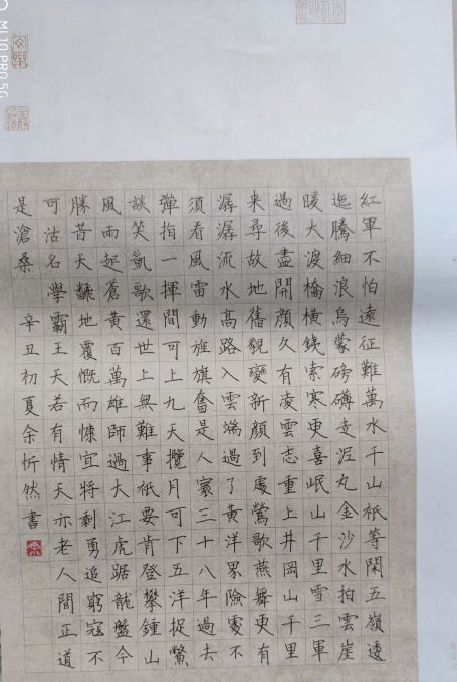 紅軍不怕遠征難萬水千山祇等閑五嶺逶
迤騰細浪烏蒙磅礴走泥丸金沙水拍雲崖
暖大渡橋橫鐵索寒更喜岷山千里雪三軍
過後盡開顏久有凌雲志重上井岡山千里
来尋故地舊貌變新顏到處鶯歌燕舞更有
潺潺流水高路入雲端過了黃洋界險處不
須看風雷動旌旗奮是人寰三十八年過去
彈指一揮間可上九天攬月可下五洋捉鱉
談笑凱歌還世上無難事祇要肯登攀鍾山
風雨起蒼黃百萬雄師過大江虎踞龍盤今
勝昔天翻地覆慨而慷宜將剩勇追窮寇不
可沽名學霸王天若有情天亦老人間正道
是滄桑 辛丑初夏余忻然書
MI 10 PRO 5G